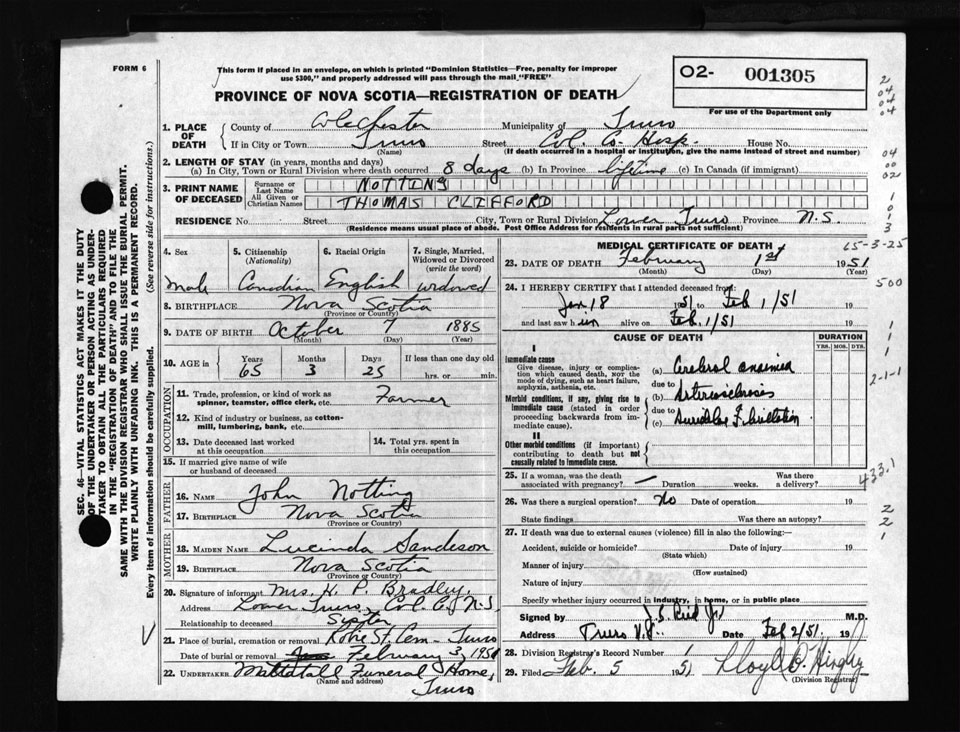 FORM 6
This form if placed in an envelope, on which is printed "Dominion Statistics—Free, penalty for improper
use $300," and properly addressed will pass through the mail "FREE"
PROVINCE OF NOVA SCOTIA—REGISTRATION OF DEATH
O2- 001305
For use of the Department only
2
04
04
04
1. PLACE OF DEATH
County of Colchester Municipality of Truro
If in City or Town Truro Street Col. Co. Hosp. House No.
(Name) (If death occurred in a hospital or institution, give the name instead of street and number)
2. LENGTH OF STAY (in years, months and days)
(a) In City, Town or Rural Division where death occurred 8 days (b) In Province lifetime (c) In Canada (if immigrant)
04
00
02
3. PRINT NAME OF DECEASED
Surname or Last Name NOTTING
All Given or Christian Names THOMAS CLIFFORD
1
0
1
3
RESIDENCE No. Street City, Town or Rural Division Lower Truro Province N.S.
(Residence means usual place of abode. Post Office Address for residents in rural parts not sufficient)
4. Sex
Male
5. Citizenship
(Nationality)
Canadian
6. Racial Origin
English
7. Single, Married,
Widowed or Divorced
(write the word)
widowed
8. BIRTHPLACE Nova Scotia
(Province or Country)
9. DATE OF BIRTH October 7 1885
(Month) (Day) (Year)
10. AGE in Years Months Days If less than one day old
65 3 25 hrs. or min.
OCCUPATION
11. Trade, profession, or kind of work as
spinner, teamster, office clerk, etc. Farmer
12. Kind of industry or business, as cotton-
mill, lumbering, bank, etc.
13. Date deceased last worked
at this occupation
14. Total yrs. spent in
this occupation
15. If married give name of wife
or husband of deceased
FATHER
16. NAME John Notting
17. BIRTHPLACE Nova Scotia
(Province or Country)
MOTHER
18. MAIDEN NAME Lucinda Sandeson
19. BIRTHPLACE Nova Scotia
(Province or Country)
20. Signature of informant Mrs. H. P. Bradley,
Address Lower Truro, Col. Co. N.S.
Relationship to deceased Syster
21. Place of burial, cremation or removal Robie St. Cem - Truro
Date of burial or removal February 3, 1951
22. UNDERTAKER Mattatall Funeral Home,
(Name and address)
Truro
MEDICAL CERTIFICATE OF DEATH
65-3-25
23. DATE OF DEATH February 1st 1951
(Month) (Day) (Year)
24. I HEREBY CERTIFY that I attended deceased from:
500
Jan 18 1951 to Feb 1/51 19
and last saw him alive on Feb. 1/51 19
CAUSE OF DEATH
DURATION
YRS. MOS. DYS.
I
Immediate cause
Give disease, injury or compli-
cation which caused death, NOT the
mode of dying, such as heart failure,
asphyxia, asthenia, etc.
(a) Cerebral anaemia
due to
Morbid conditions, if any, giving rise to
immediate cause (stated in order
proceeding backwards from im-
mediate cause).
(b) Arteriosclerosis
due to
(c) Auricular Fibrillation
II
Other morbid conditions (if important)
contributing to death but not
causally related to immediate cause.
1
1
1
2-1-1
433.1
25. If a woman, was the death
associated with pregnancy? — Duration weeks. Was there
a delivery?
26. Was there a surgical operation? No Date of operation 19
State findings Was there an autopsy?
2
2
1
27. If death was due to external causes (violence) fill in also the following:—
Accident, suicide or homicide? Date of injury 19
(State which)
Manner of injury
(How sustained)
Nature of injury
Specify whether injury occurred in industry, in home, or in public place
Signed by J. S. Reid Jr M.D.
Address Truro N.S. Date Feb 2/51. 19
28. Division Registrar's Record Number 1
29. Filed Feb. 5 1951
(Division Registrar)
SEC. 46—VITAL STATISTICS ACT MAKES IT THE DUTY
OF THE UNDERTAKER OR PERSON ACTING AS UNDER-
TAKER TO OBTAIN ALL THE PARTICULARS REQUIRED
IN THE "REGISTRATION OF DEATH" AND TO FILE THE
SAME WITH THE DIVISION REGISTRAR WHO SHALL ISSUE THE BURIAL PERMIT.
WRITE PLAINLY WITH UNFADING INK. THIS IS A PERMANENT RECORD.
Every item of information should be carefully supplied. (See reverse side for instructions.)